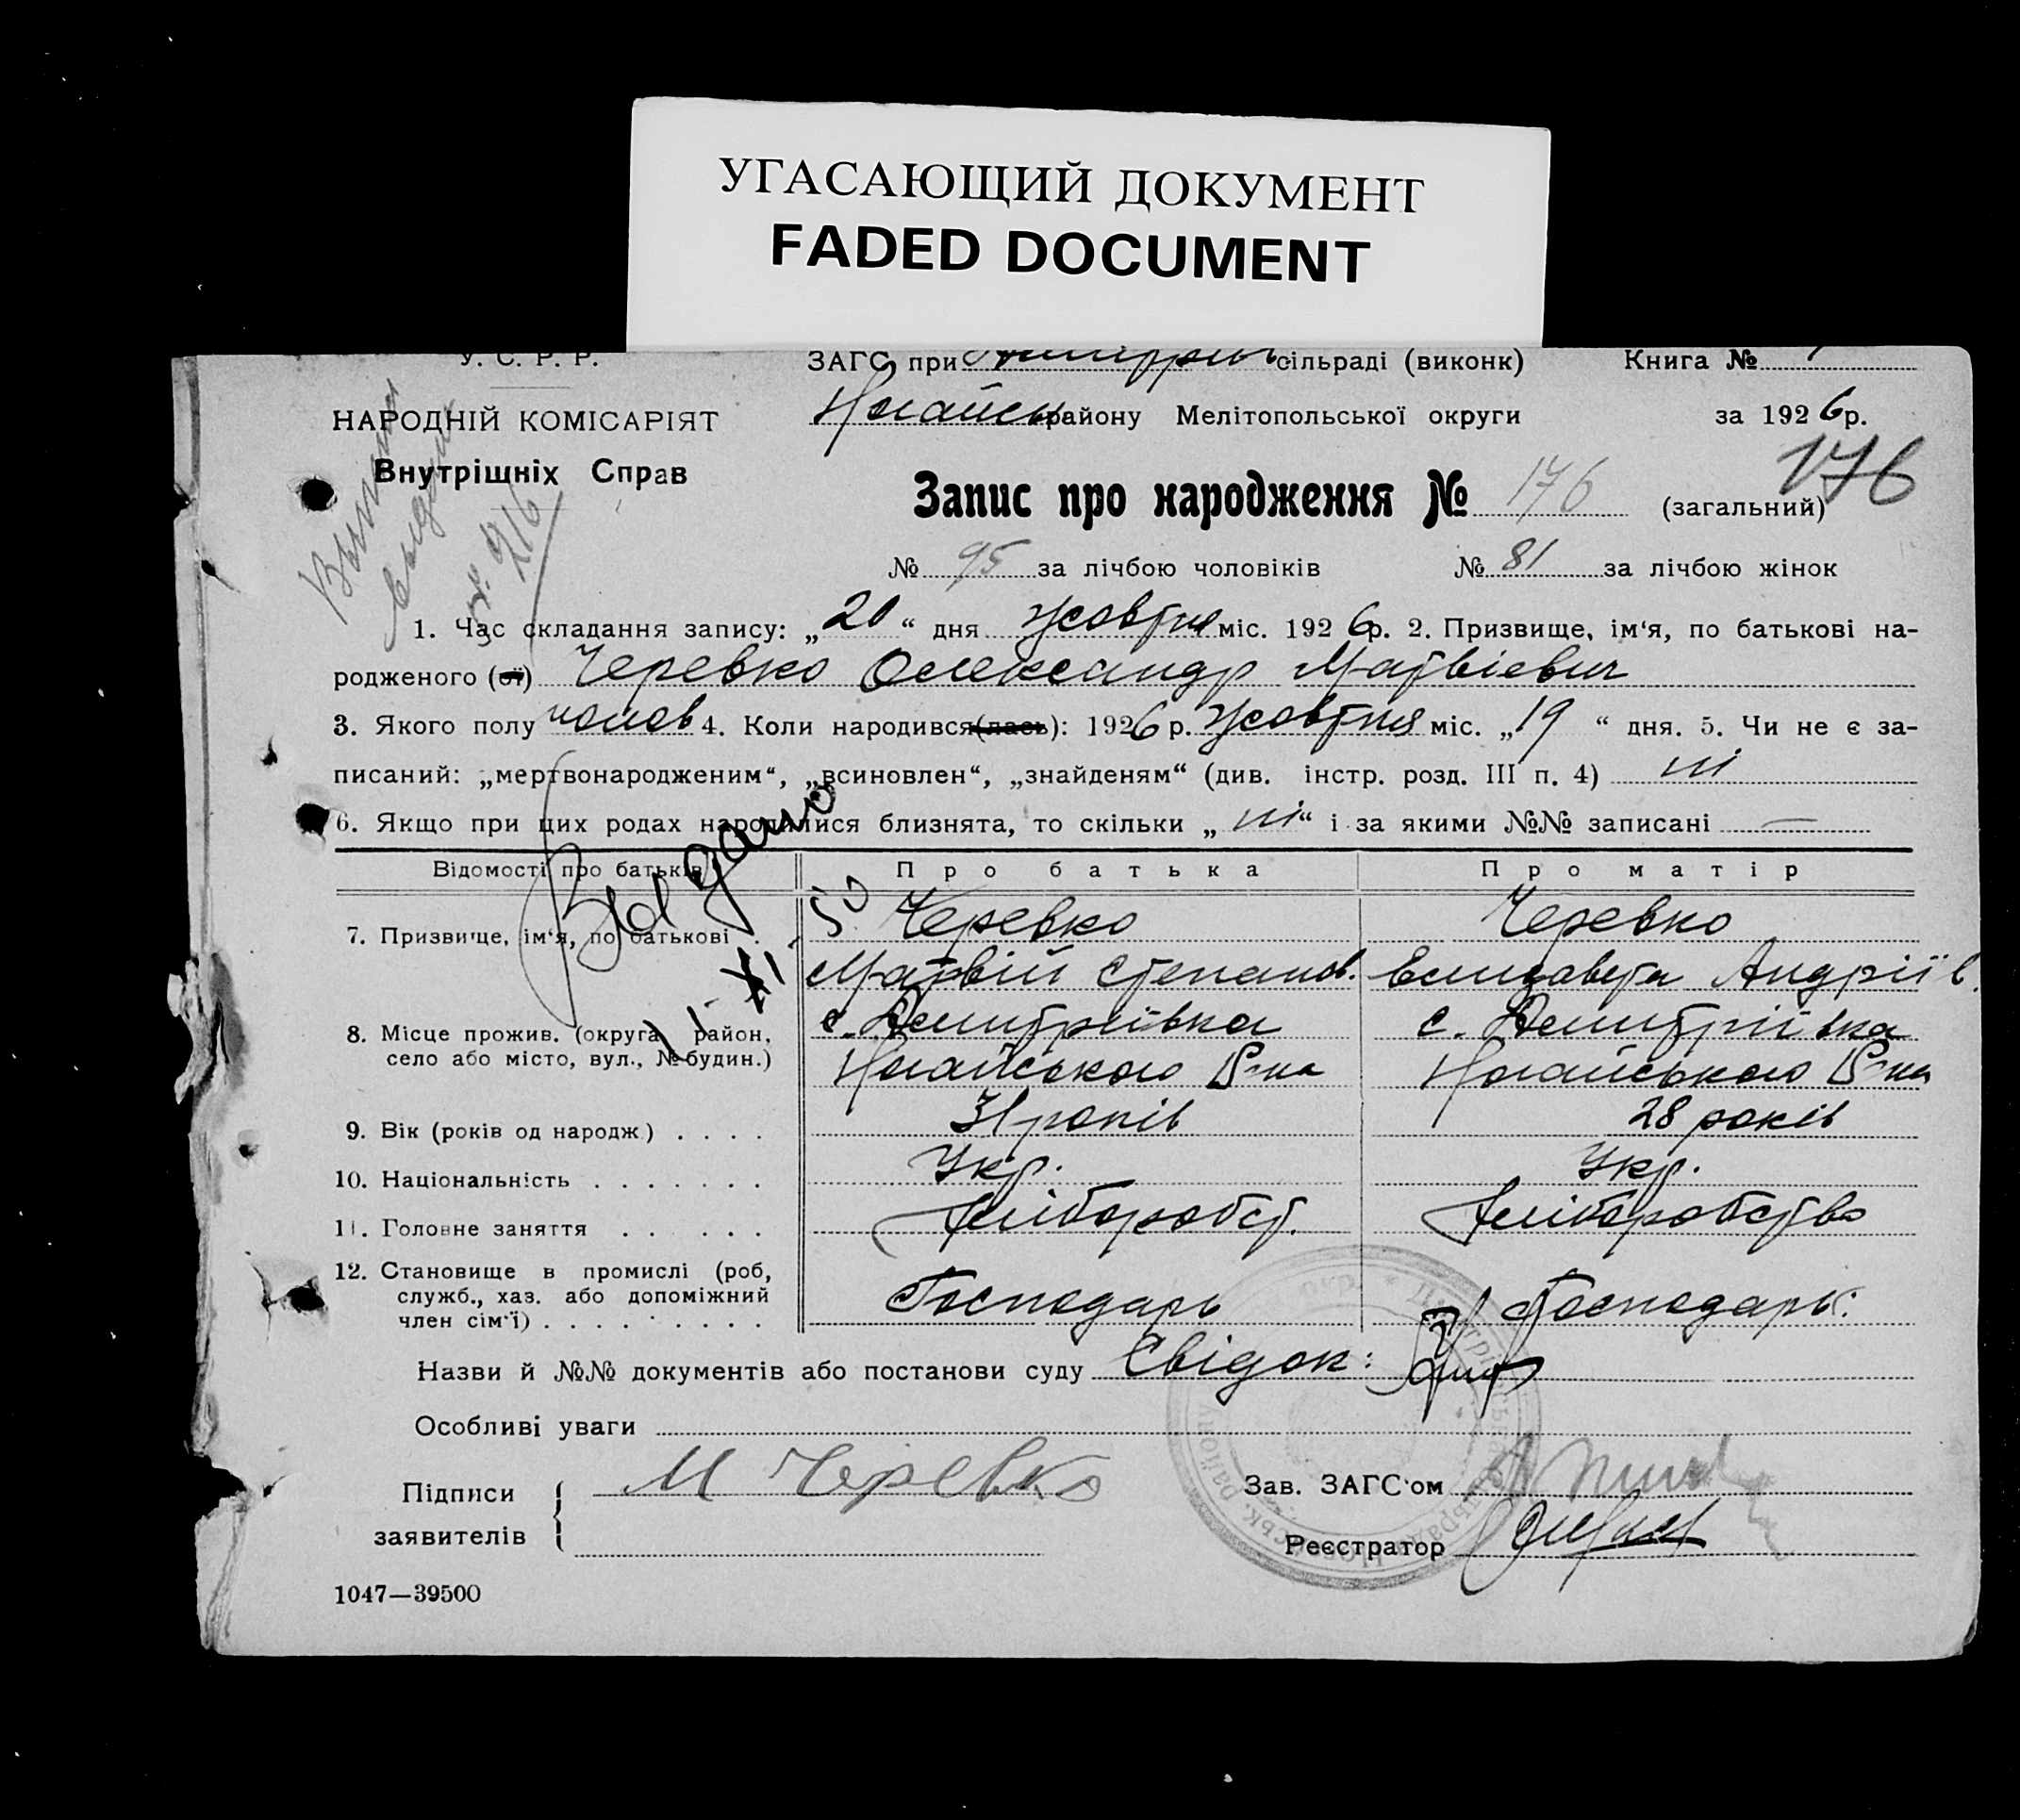 УГАСАЮЩИЙ ДОКУМЕНТ
FADED DOCUMENT
У. С. Р. Р.
ЗАГС при сільраді (виконк) Книга №
НАРОДНІЙ КОМІСАРІЯТ
Ногайськ району Мелітопольської округи за 1926 р.
Внутрішніх Справ
Запис про народження № 176 (загальний) 176
№ 95 за лічбою чоловіків № 81 за лічбою жінок
216
1. Час складання запису: „20“ дня жовтня міс. 1926 р. 2. Призвище, ім‘я, по батькові на-
родженого (ої) Черевко Олександр Матвієвич
3. Якого полу чолов 4. Коли народився(лась): 1926 р. жовтня міс. „19“ дня. 5. Чи не є за-
писаний: „мертвонародженим“, „всиновлен“, „знайденям“ (див. інстр. розд. III п. 4) ні
6. Якщо при цих родах народилися близнята, то скільки „ні“ і за якими №№ записані —
Видано
Відомості про батьків Про батька Про матір
7. Призвище, ім‘я, по батькові . Черевко Черевко
Матвій Степанов. Елизавета Андріїв.
8. Місце прожив. (округа, район, с. Дмитріївка с. Дмитріївка
село або місто, вул., № будин.) Ногайського Р-на Ногайського Р-на
9. Вік (років од народж.) . . . . 31 років 28 років
10. Національність . . . . . . . Укр. Укр.
11. Головне заняття . . . . . . Хліборобст. Хліборобство
12. Становище в промислі (роб,
служб., хаз. або допоміжний Господарь Господарь:
член сім‘ї) . . . . . . . . .
Назви й №№ документів або постанови суду Свідок:
Особливі уваги
Підписи М Черевко Зав. ЗАГС‘ом
заявителів Реєстратор
1047—39500